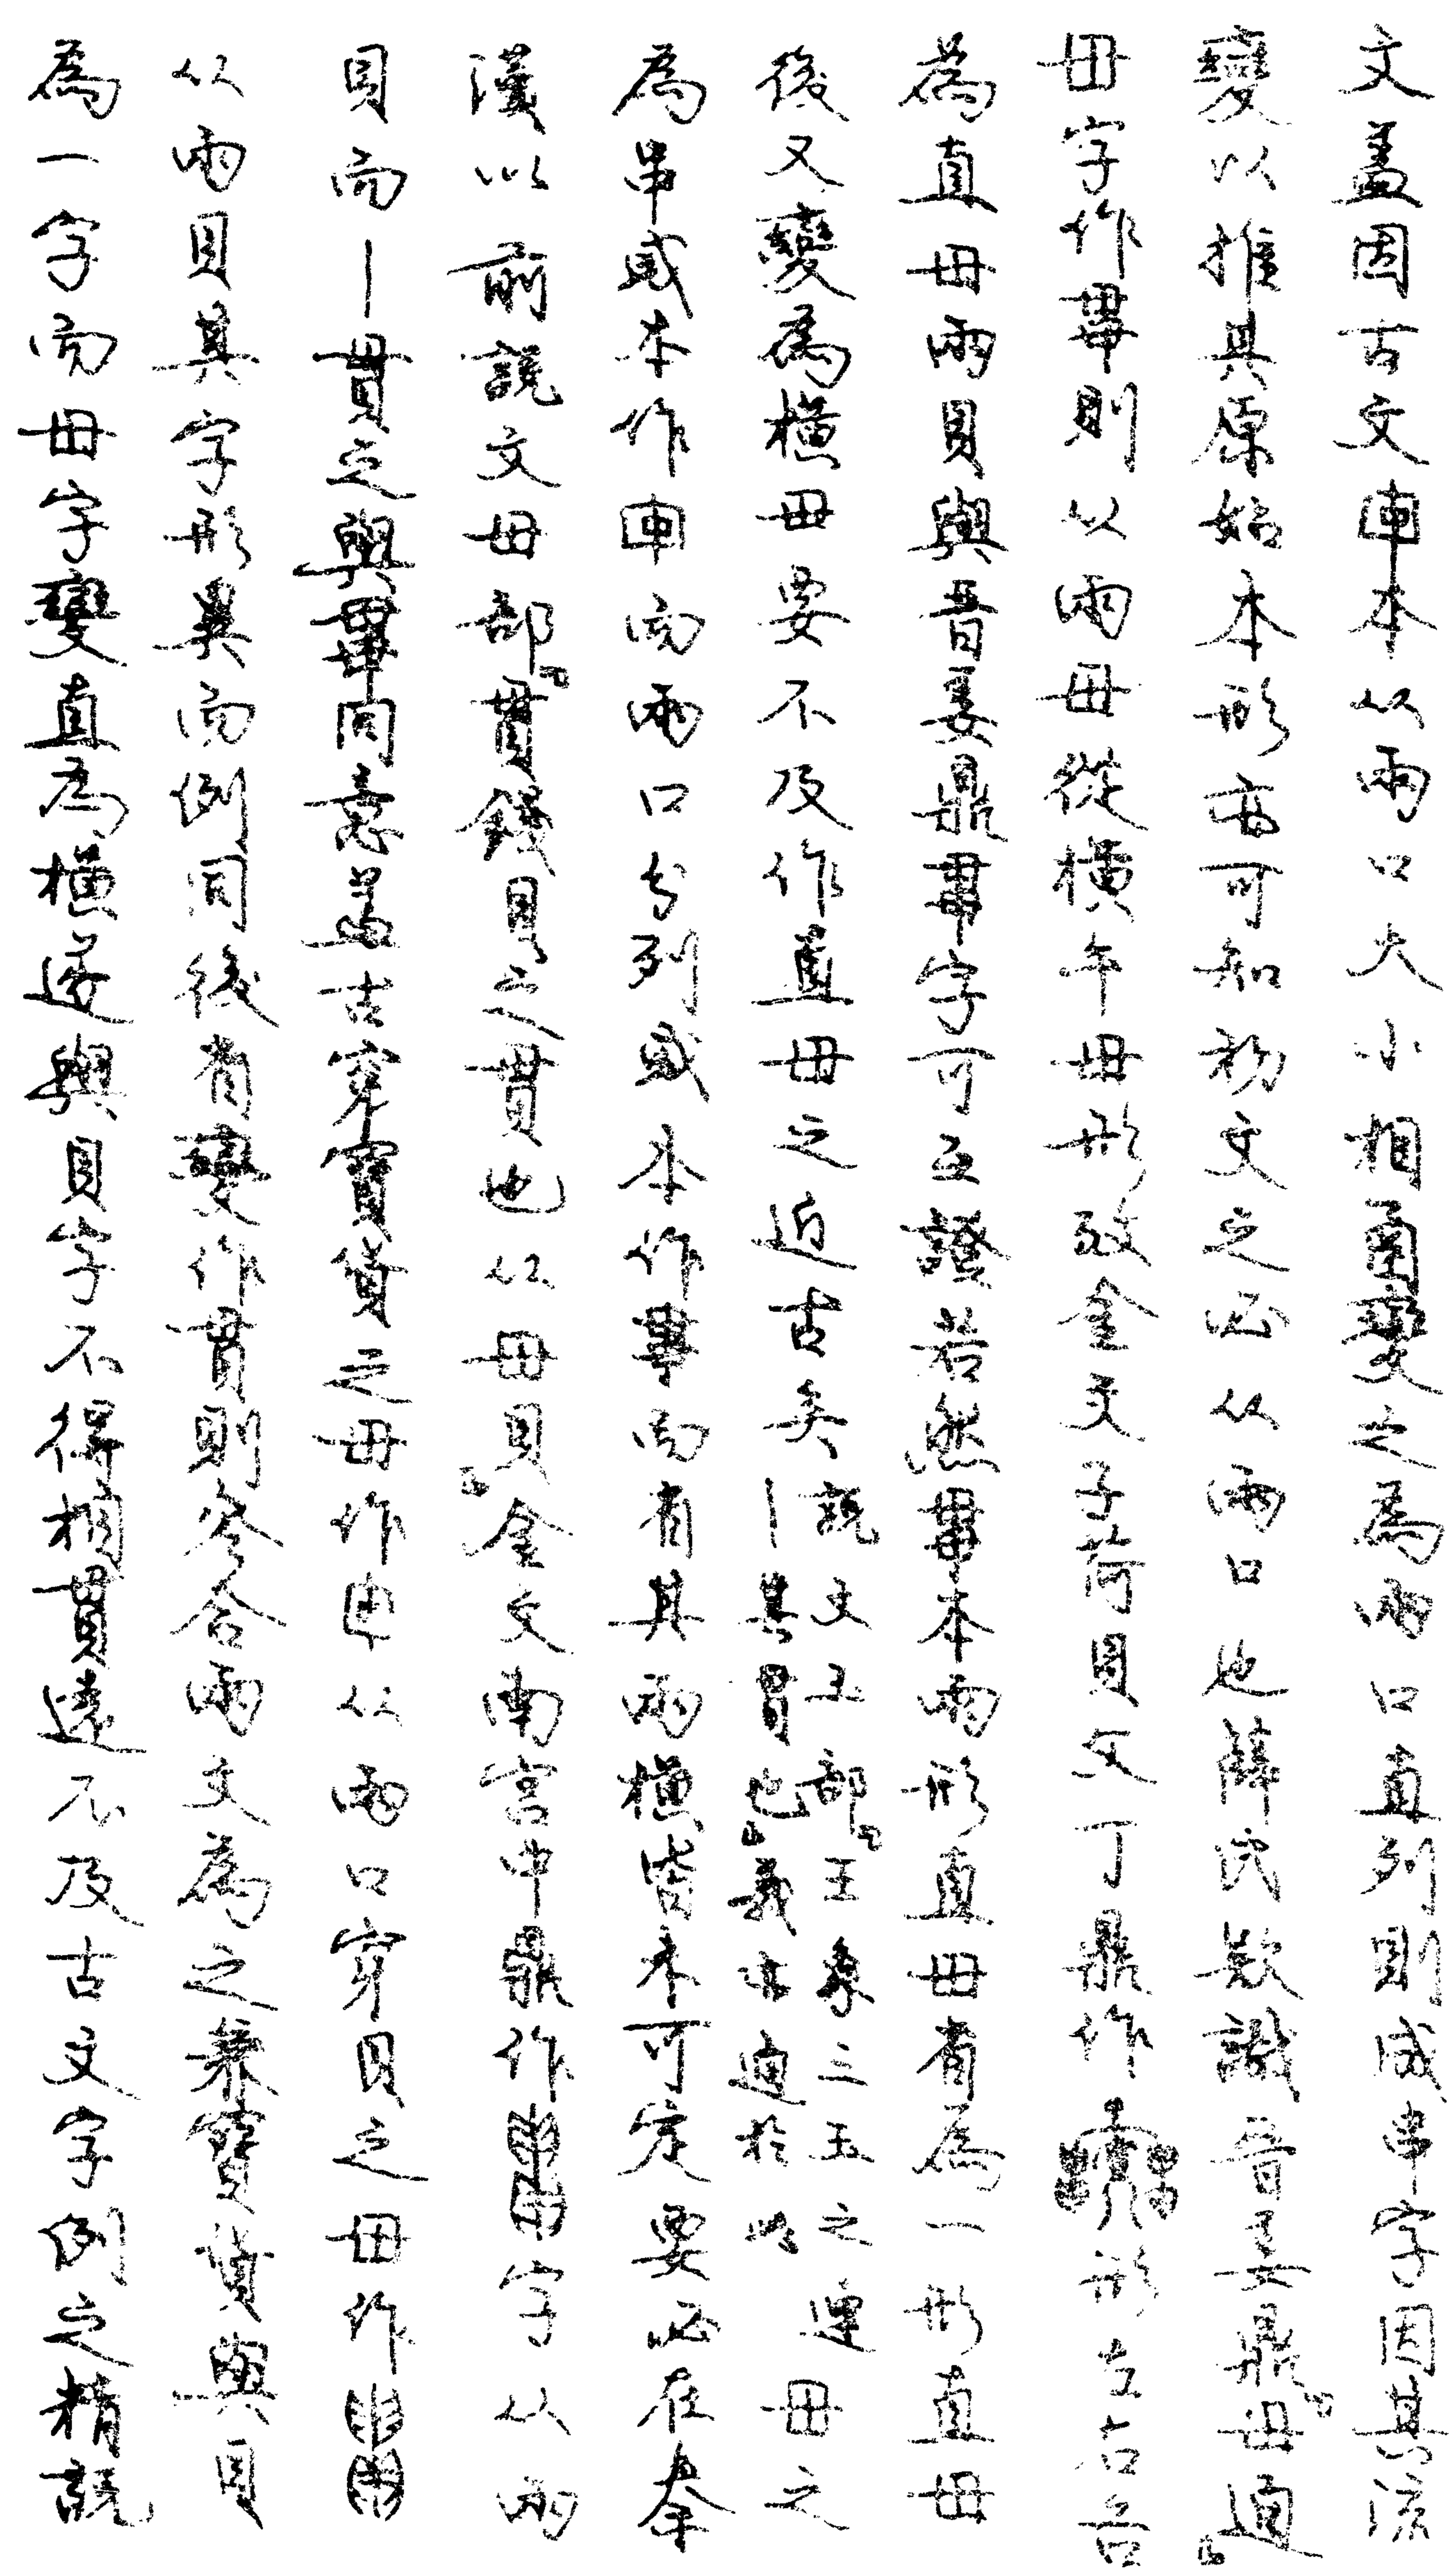 文蓋因古文𢎘本从兩口大小相𠕋變之為兩口直列則成串字因其流
變以推其原始本形亦可知初文之必从兩口也薛氏欵識晉姜鼎「毌通」
毌字作𤱍則以兩毌從橫午毌形攷金文子荷貝父丁鼎作形左右各
為直毌兩貝與晉姜鼎𤱍字可互證若然𤱍本兩形直毌省為一形直毌
後又變為橫毌要不及作直毌之近古矣說文玉部「王象三玉之連丨其貫也」義亦通於此毌之
為串或本作𢎘而兩口分列或本作事而省其兩橫皆未可定要必在秦
漢以前說文毌部「貫錢貝之貫也从毌貝」金文南宮中鼎作字从兩
貝而丨貫之與𤱍同意蓋古穿寶貨之毌作申从兩口穿貝之毌作
从兩貝其字形異而例同後省變作貫則參合兩文為之兼寶貨與貝
為一字而毌字變直為橫遂與貝字不得相貫遠不及古文字例之精説